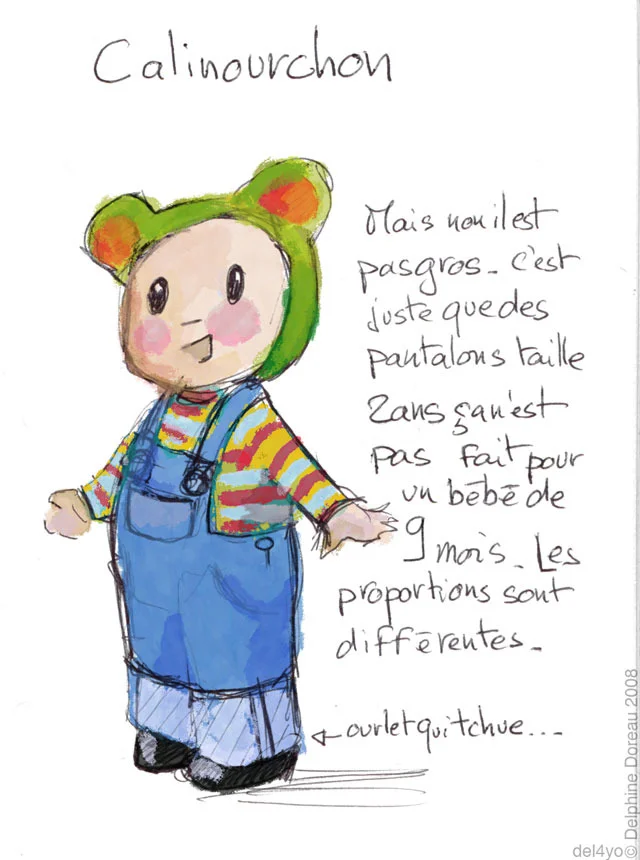 Calinourchon
Mais non il est
pas gros_ c'est
juste que des
pantalons taille
2ans ça n'est
pas fait pour
un bébé de
9 mois_ Les
proportions sont
différentes_
ourlet qui tchue...
Delphine Doreau 2008
del4yo©